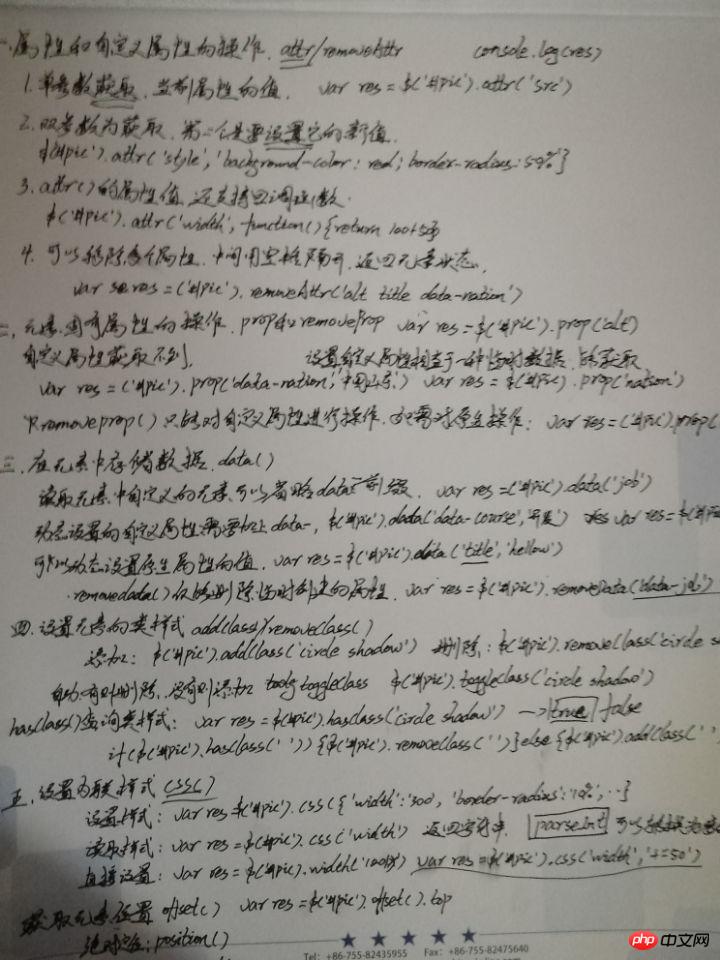 一.属性和自定义属性的操作. attr/removeAttr console.log(res)
1.单参数获取,当前属性的值. var res = $('#pic').attr('src')
2.双参数为获取,第二个是要设置它的新值.
$('#pic').attr('style','background-color: red; border-radius: 50%'}
3.attr()的属性值,还支持回调函数.
$('#pic').attr('width', function(){return 100+50}
4.可以移除多个属性.中间用空格隔开,返回元素状态,
var res = ('#pic').removeAttr('alt title data-nation')
二,元素固有属性的操作. prop和removeProp var res = $('#pic').prop('alt)
自定义属性获取不到. 设置自定义属性相当于一种临时数据,能获取
var res = ('#pic').prop('data-nation,'中国山东') var res = $(#pic).prop('nation')
removeprop()只能对自定义属性进行操作.如需对原生操作: var res = ('#pic').prop(
三.在元素中存储数据.data()
读取元素中自定义的元素,可以省略data-前缀. var res = ('#pic').data('job')
动态设置的自定义属性:需要加上data-, $('#pic').dada('data-course','开发') var res = $('#
可以动态设置原生属性的值. var res = $('#pic').data('title','hellow')
removedada()仅能删除临时创建的属性. var res = $('#pic').removeData('data-job')
四.设置元素的类样式 addclass()/removeclass()
添加: $('#pic').addClass('circle shadow') 删除: $('#pic').removeClass('circle s
自动:有则删除,没有则添加 toggleclass $('#pic').toggleClass('circle shadow')
hasClass()查询类样式: var res = $('#pic').hasClass('circle shadow') → true false
if($('#pic').hasClass(' ')){$('#pic').removeClass(' ')}else{$('#pic').addClass(' '
五.设置内联样式 css()
设置样式: var res $('#pic').css({'width':'300, 'border-radius':'10%',…}
读取样式: var res = $('#pic').css('width') 返回字符串. parseInt 可以转换为
直接设置: var res = $('#pic').width( var res = $('#pic').css('width','+=50')
获取元素位置 offset() var res = $('#pic').offset().top
绝对定位: position()
Tel: +86-755-82435955 Fax: +86-755-82475640
php 中文网